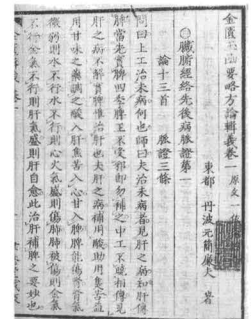 金匱玉函要略方論輯義卷一
東都 丹波元簡廉夫 著
臟腑經絡先後病脉證第一
論十三首 脉證三條
問曰上工治未病何也師曰夫治未病者見肝之病知肝傳
脾當先實脾四季脾王不受邪即勿補之中工不曉相傳見
肝之病不解實脾惟治肝也夫肝之病補用酸助用焦苦益
用甘味之藥調之酸入肝焦苦入心甘入脾脾能傷腎腎氣
微弱則水不行水不行則心火氣盛則傷肺肺被傷則金氣
不行金氣不行則肝氣盛則肝自愈此治肝補脾之要妙也